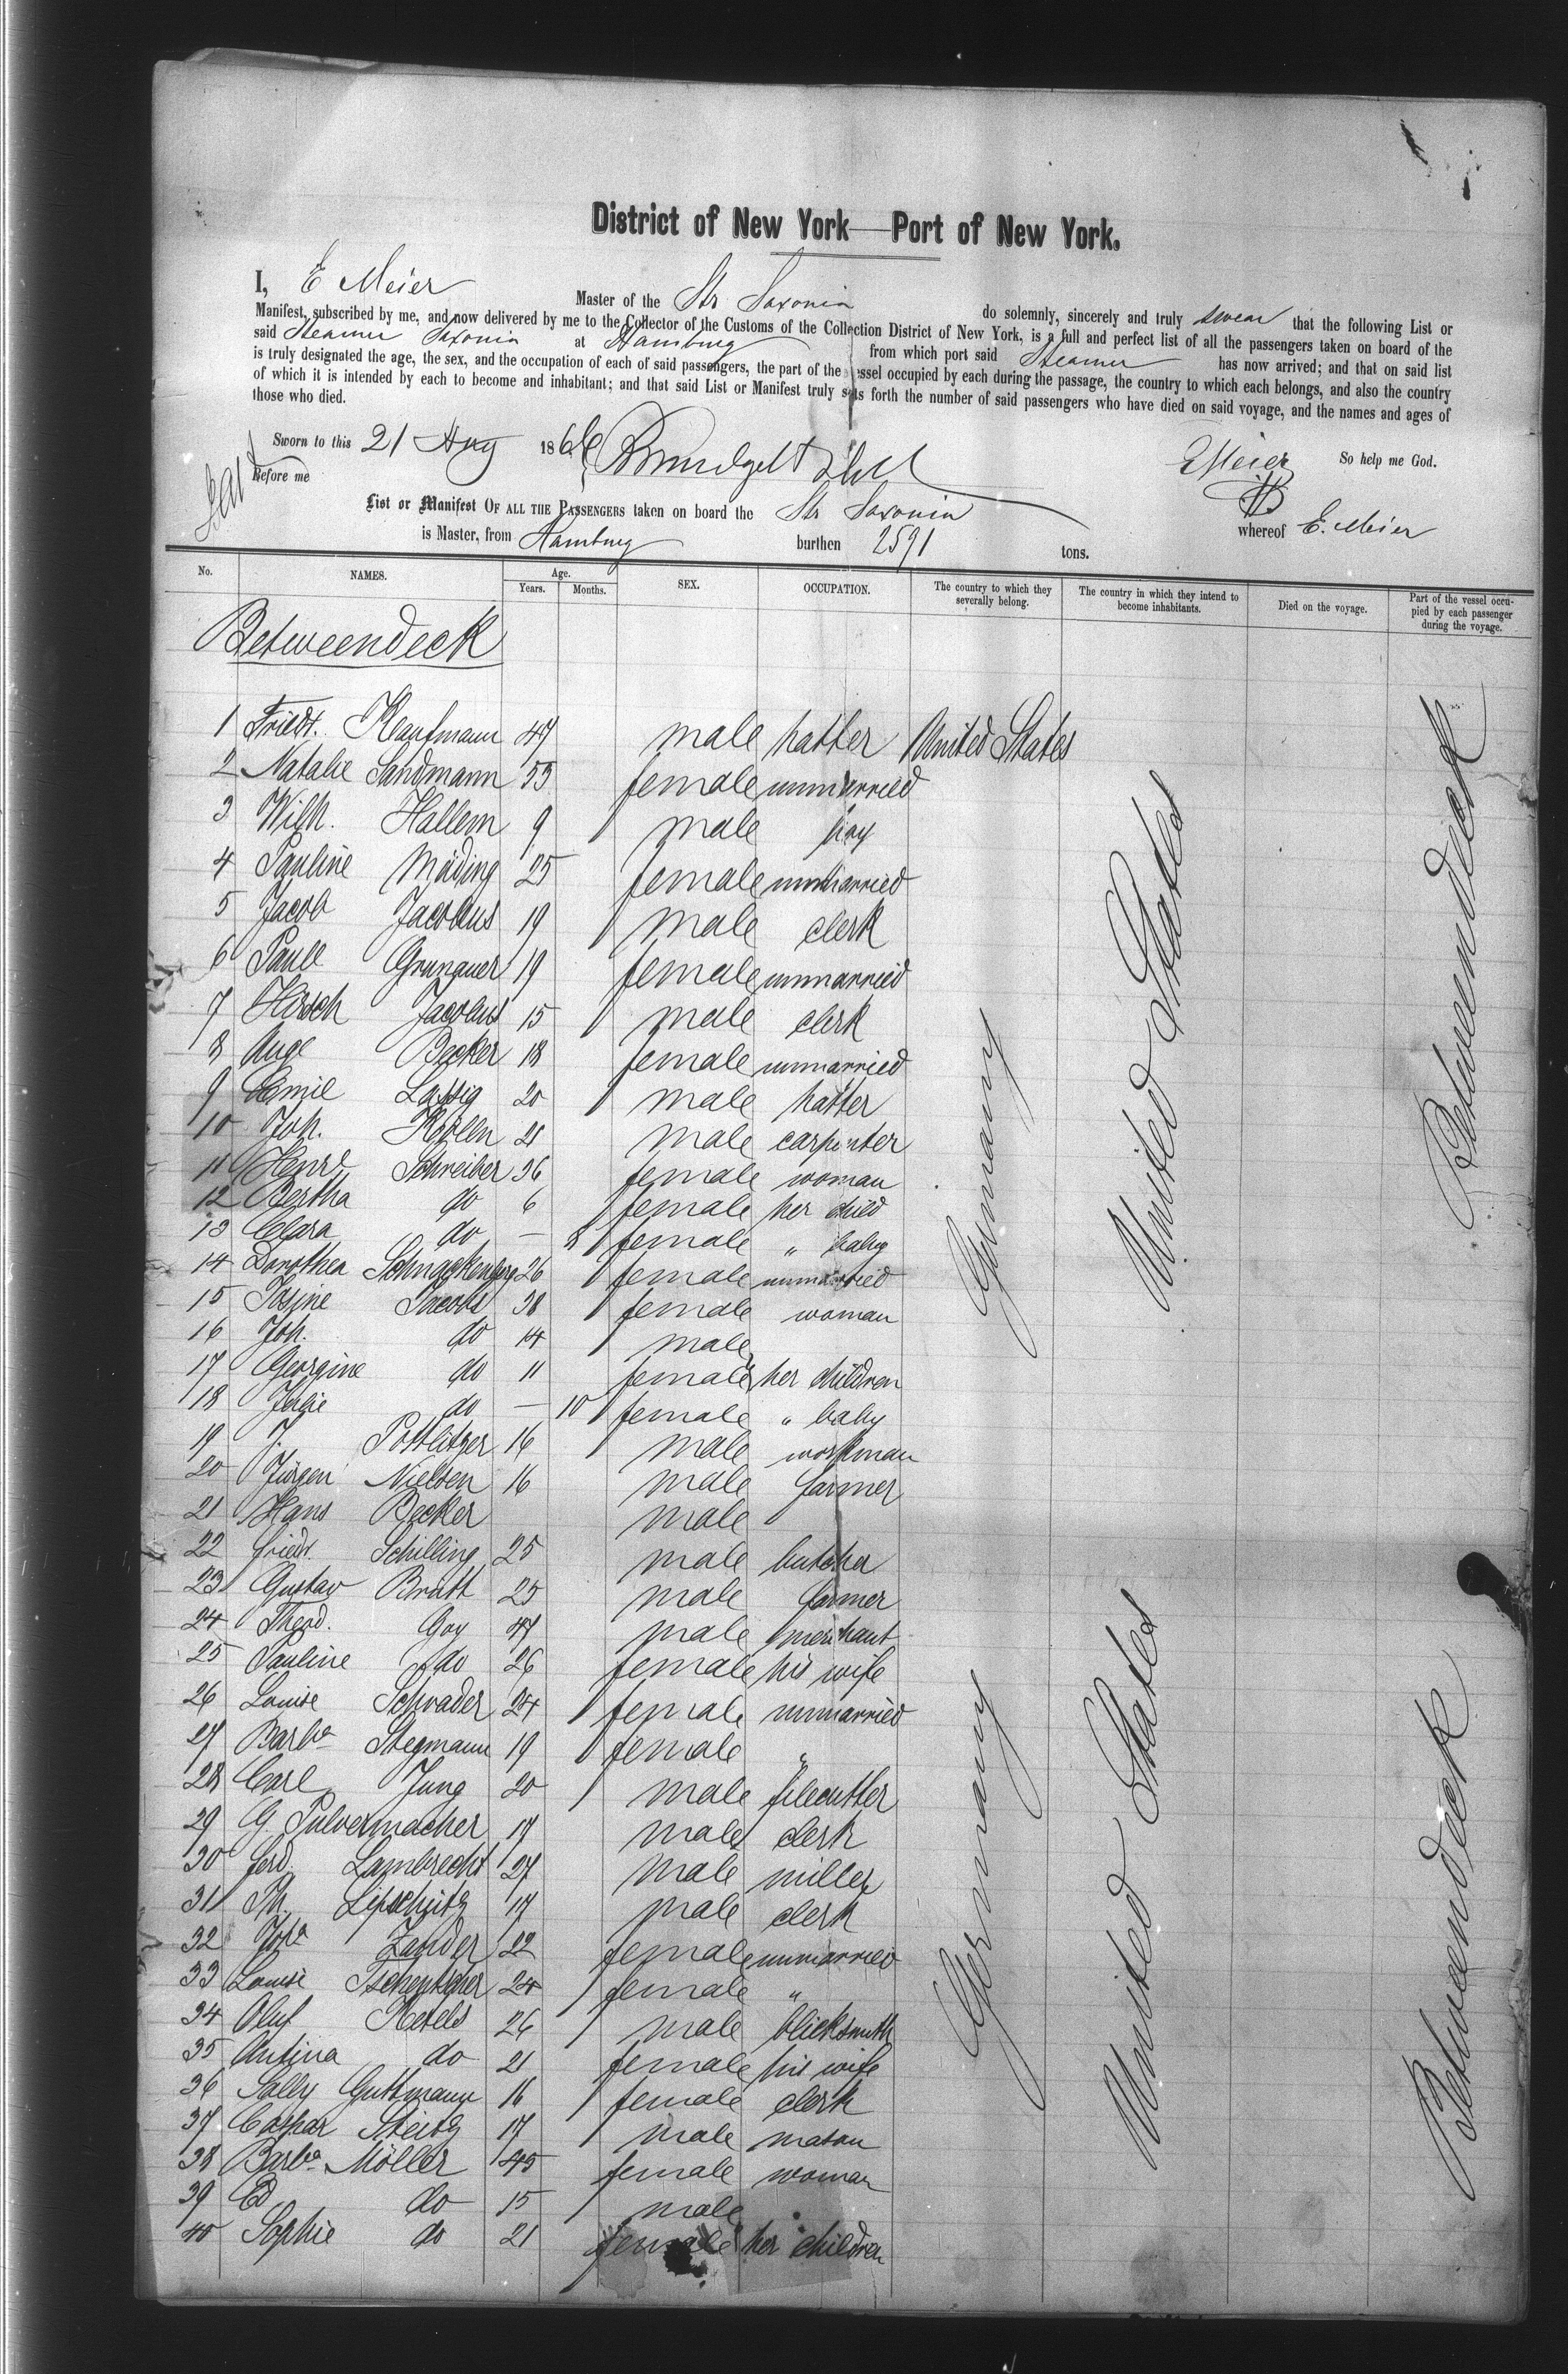 District of New York—Port of New York.
I, E Meier Master of the Str Saxonia do solemnly, sincerely and truly swear that the following List or
Manifest, subscribed by me, and now delivered by me to the Collector of the Customs of the Collection District of New York, is a full and perfect list of all the passengers taken on board of the
said Steamer Saxonia at Hamburg from which port said Steamer has now arrived; and that on said list
is truly designated the age, the sex, and the occupation of each of said passengers, the part of the vessel occupied by each during the passage, the country to which each belongs, and also the country
of which it is intended by each to become and inhabitant; and that said List or Manifest truly sets forth the number of said passengers who have died on said voyage, and the names and ages of
those who died.
Sworn to this 21 Aug 1866
E Meier So help me God.
Before me
List or Manifest OF ALL THE PASSENGERS taken on board the Str Saxonia whereof E. Meier
is Master, from Hamburg burthen 2591 tons.
No. NAMES. Age. Years. Months. SEX. OCCUPATION. The country to which they severally belong. The country in which they intend to become inhabitants. Died on the voyage. Part of the vessel occupied by each passenger during the voyage.
Betweendeck
1 Friedr. Kaufmann 47 male hatter United States
2 Natalie Sandmann 53 female unmarried
3 Wilh. Hallem 9 male boy
4 Pauline Mäding 25 female unmarried
5 Jacob Jacobus 19 male clerk
6 Paule 19 female unmarried
7 Hirsch Jacobus 15 male clerk
8 Auge Becker 18 female unmarried
9 Emil Lassig 20 male hatter
10 Joh. 21 male carpenter
11 Henre Schreiber 36 female woman
12 Bertha do 6 female her child
13 Clara do — 8 female " baby
14 Dorothea Schnackenberg 26 female unmarried
15 Jacobs 38 female woman
16 Joh. do 14 male
17 Georgine do 11 female her children
18 Julie do — 10 female " baby
19 J. Pottlitzer 16 male workman
20 Jürgen Nielsen 16 male farmer
21 Hans Becker male
22 Friedr. Schilling 25 male butcher
23 Gustav Bratt 25 male farmer
24 Theod. Goy 47 male merchant
25 Pauline do 26 female his wife
26 Louise Schrader 24 female unmarried
27 Barba Stegmann 19 female "
28 Carl Jung 20 male filecutter
29 G. Pulvermacher 17 male clerk
30 Ferd. Lambrecht 27 male miller
31 Ph. Lipschutz 17 male clerk
32 Joha Zander 22 female unmarried
33 Louise 24 female "
34 Oluf Ketels 26 male blicksmith
35 Antina do 21 female his wife
36 Sally Guttmann 16 female clerk
37 Caspar Steitz 17 male mason
38 Barba Möller 45 female woman
39 Ed do 15 male
40 Sophie do 21 female her children
Germany
United States
Betweendeck
Germany
United States
Betweendeck